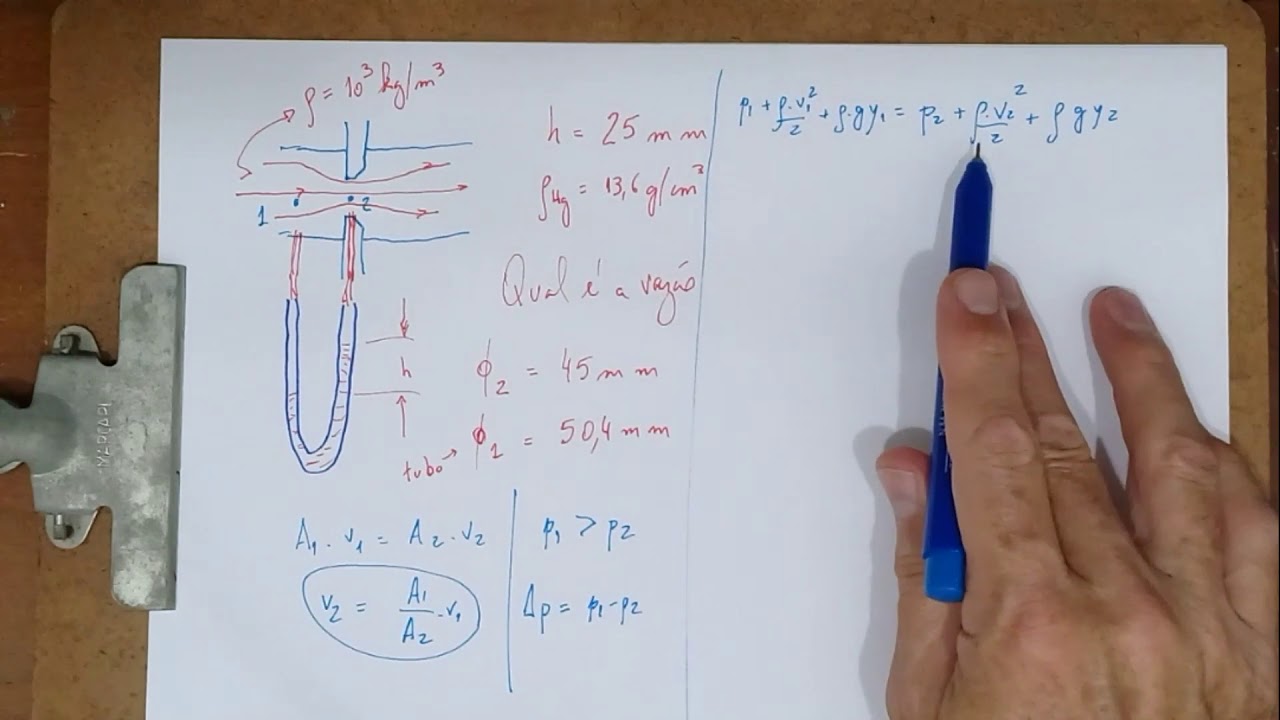 ρ = 10³ kg/m³
1
2
h
h = 25 mm
ρHg = 13,6 g/cm³
Qual é a vazão
ϕ₂ = 45 mm
tubo → ϕ₁ = 50,4 mm
A₁ . v₁ = A₂ . v₂
v₂ = A₁/A₂ . v₁
p₁ > p₂
Δp = p₁ - p₂
p₁ + ρ.v₁²/2 + ρ.gy₁ = p₂ + ρ.v₂²/2 + ρgy₂